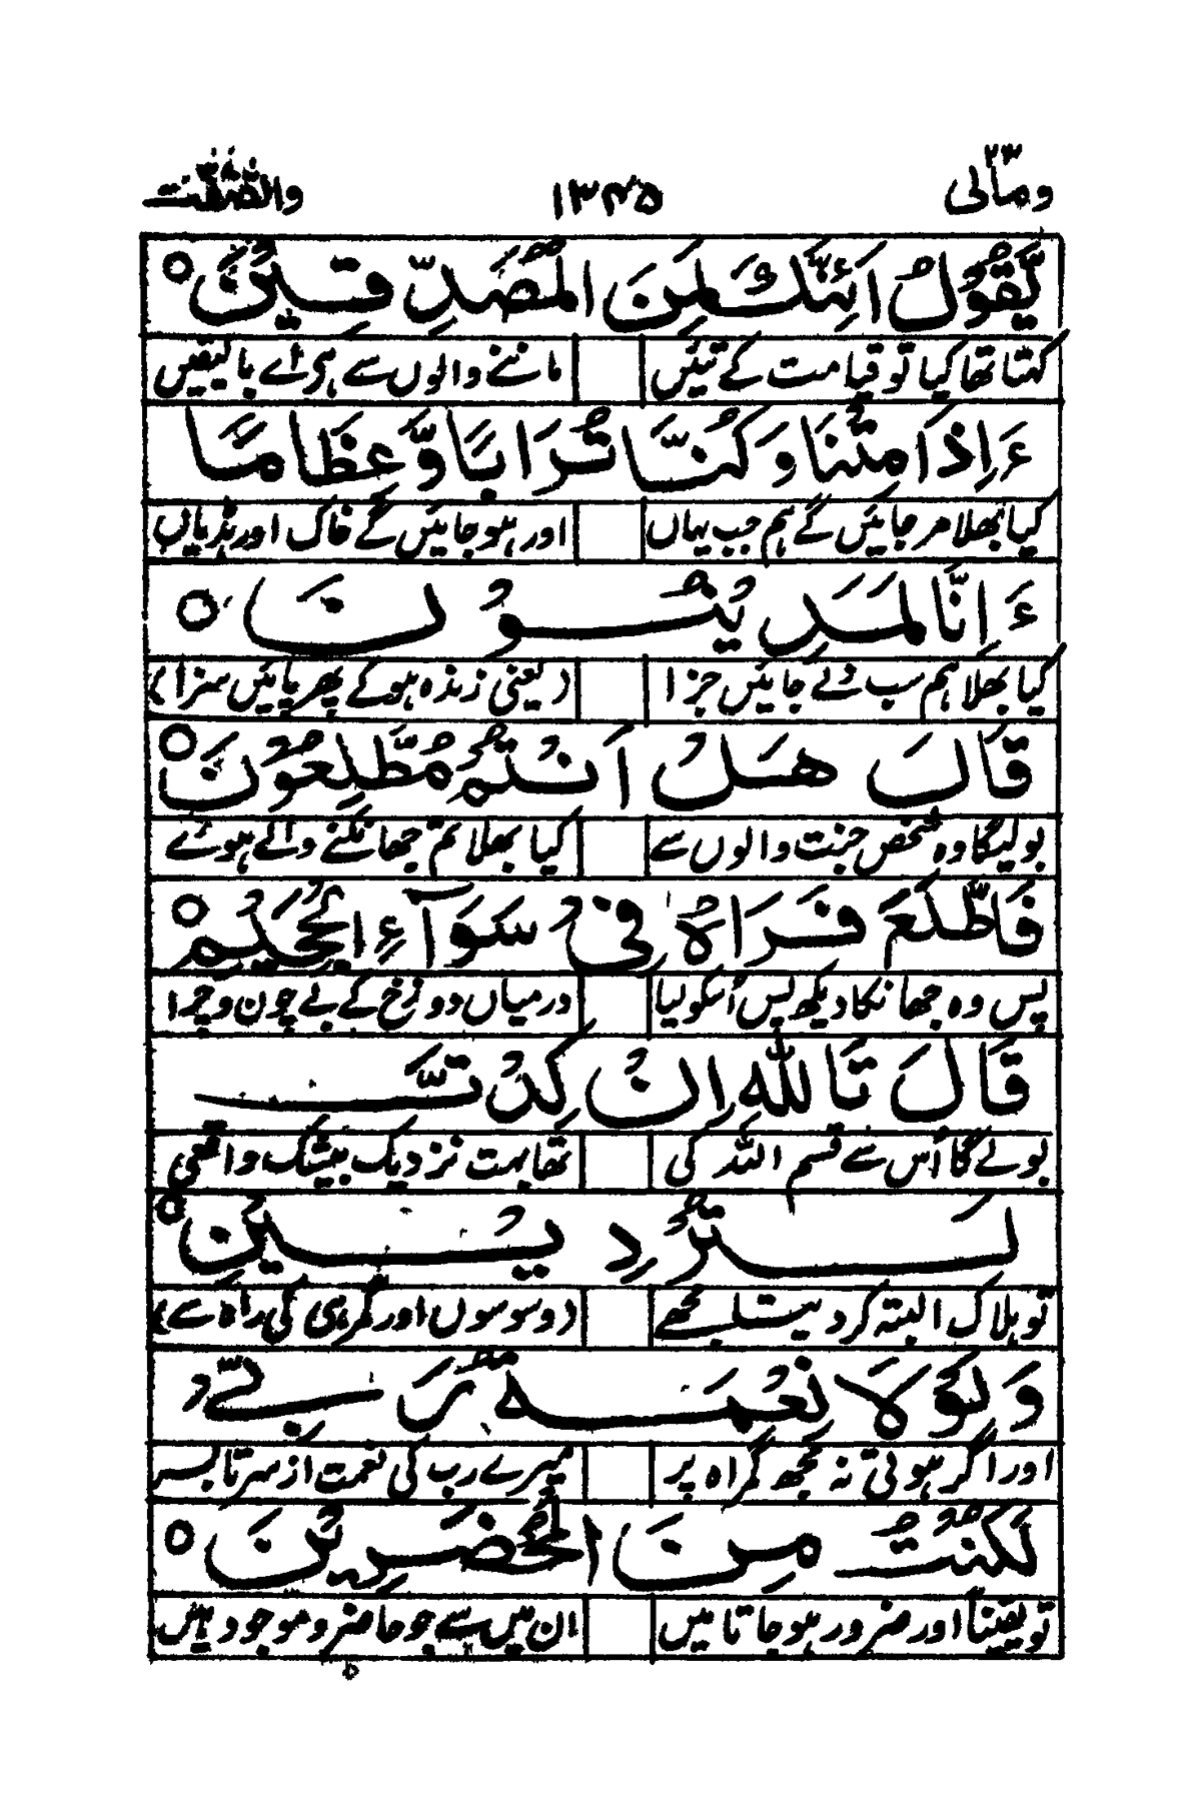 ومالی ٢٣ ١٣٤٥ والصّٰفّٰت ٣٧
يَّقُوْلُ اَئِنَّكَ لَمِنَ الْمُصَدِّقِيْنَ ○
کہتا تھا کیا تو قیامت کے تئیں ماننے والوں سے ہی اے بالیقیں
ءَاِذَا مِتْنَا وَكُنَّا تُرَابًا وَّعِظَامًا
کیا بھلا مر جائیں گے ہم جب یہاں اور ہو جائیں گے خاک اور ہڈیاں
ءَاِنَّا لَمَدِيْنُوْنَ ○
کیا بھلا ہم سب دئے جائیں جزا (یعنی زندہ ہو کے پھر پائیں سزا)
قَالَ هَلْ اَنْتُمْ مُّطَّلِعُوْنَ ○
بولیگا وہ شخص جنت والوں سے کیا بھلا تم جھانکنے والے ہوئے
فَاطَّلَعَ فَرَاٰهُ فِيْ سَوَآءِ الْجَحِيْمِ ○
پس وہ جھانکا دیکھ پس اُسکو لیا درمیاں دوزخ کے بے چون و چرا
قَالَ تَاللّٰهِ اِنْ كِدْتَّ
بولے گا اُس سے قسم اللہ کی تھا بہت نزدیک بیشک واقعی
لَتُرْدِيْنِ ○
تو ہلاک البتہ کر دیتا مجھے (وسوسوں اور گمرہی کی راہ سے)
وَلَوْلَا نِعْمَةُ رَبِّيْ
اور اگر ہوتی نہ مجھ گمراہ پر میرے رب کی نعمت از سر تا بسر
لَكُنْتُ مِنَ الْمُحْضَرِيْنَ ○
تو یقیناً اور ضرور ہو جاتا میں ان میں سے جو حاضر و موجود ہیں